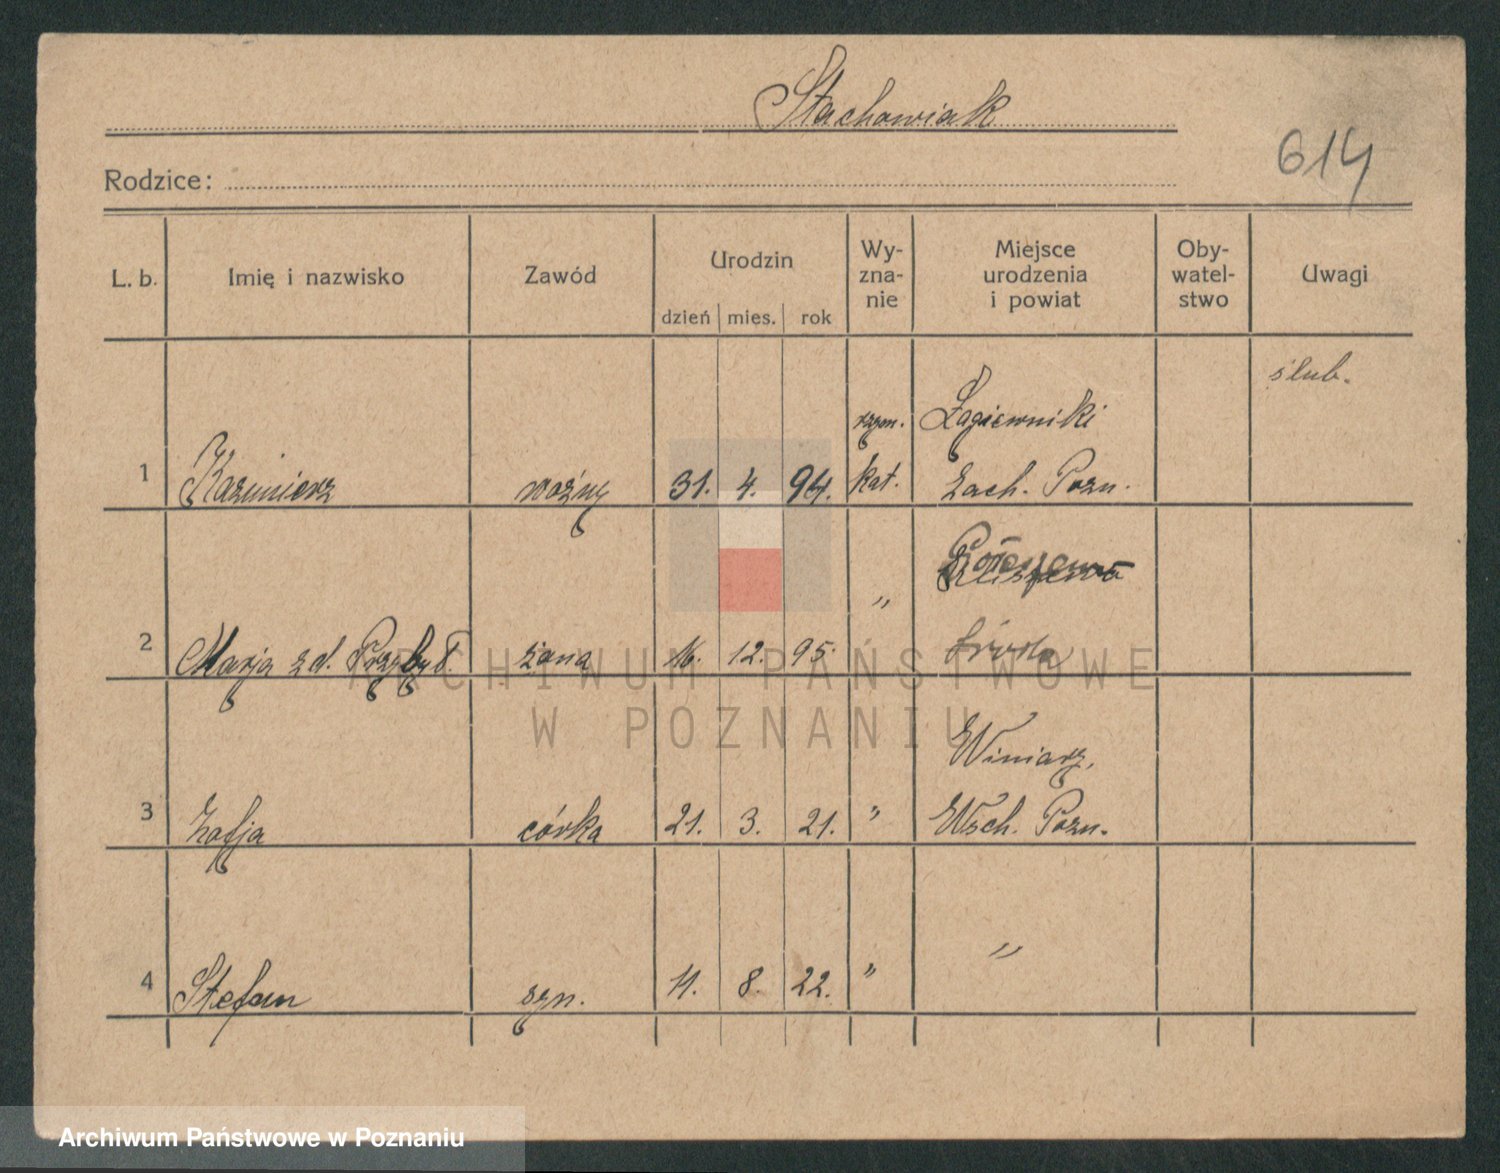 Stachowiak
614
Rodzice:
L. b. Imię i nazwisko Zawód Urodzin dzień mies. rok Wy-zna-nie Miejsce urodzenia i powiat Oby-watel-stwo Uwagi
ślub.
rzym. Łagiewniki
1 Kazimierz woźny 31. 4. 94. kat. Zach. Pozn.
"
2 Marja zd. Przybył. żona 16. 12. 95. Środa
ARCHIWUM PAŃSTWOWE
W POZNANIU
Winiary,
3 Zofja córka 21. 3. 21. " Wsch. Pozn.
"
4 Stefan syn. 11. 8. 22. "
Archiwum Państwowe w Poznaniu